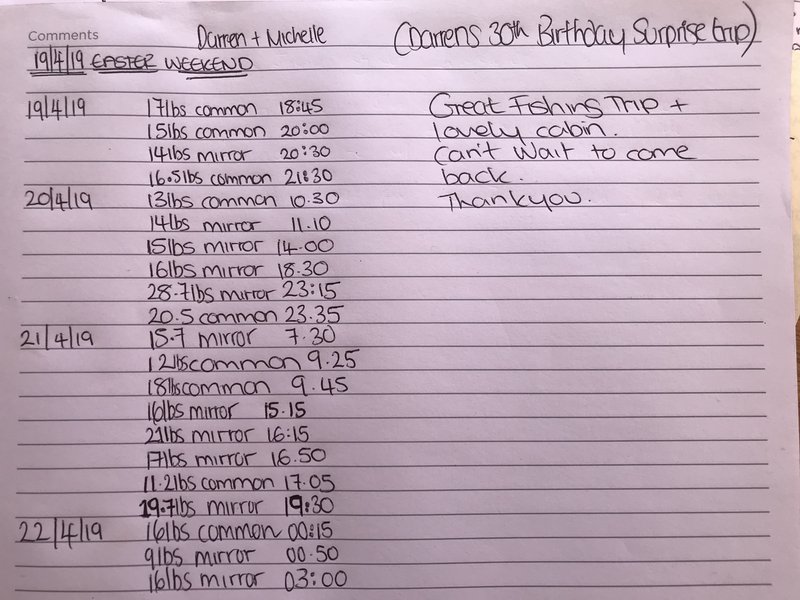 Comments Darren + Michelle (Darrens 30th Birthday Surprise trip)
19/4/19 EASTER WEEKEND
19/4/19 17lbs common 18:45 Great Fishing Trip +
15lbs common 20:00 lovely cabin.
14lbs mirror 20:30 Can't wait to come
16.5lbs common 21:30 back.
20/4/19 13lbs common 10.30 Thankyou.
14lbs mirror 11.10
15lbs mirror 14.00
16lbs mirror 18.30
28.7lbs mirror 23:15
20.5 common 23.35
21/4/19 15.7 mirror 7.30
12lbs common 9.25
18lbs common 9.45
16lbs mirror 15.15
21lbs mirror 16:15
17lbs mirror 16.50
11.2lbs common 17.05
19.7lbs mirror 19:30
22/4/19 16lbs common 00:15
9lbs mirror 00.50
16lbs mirror 03:00